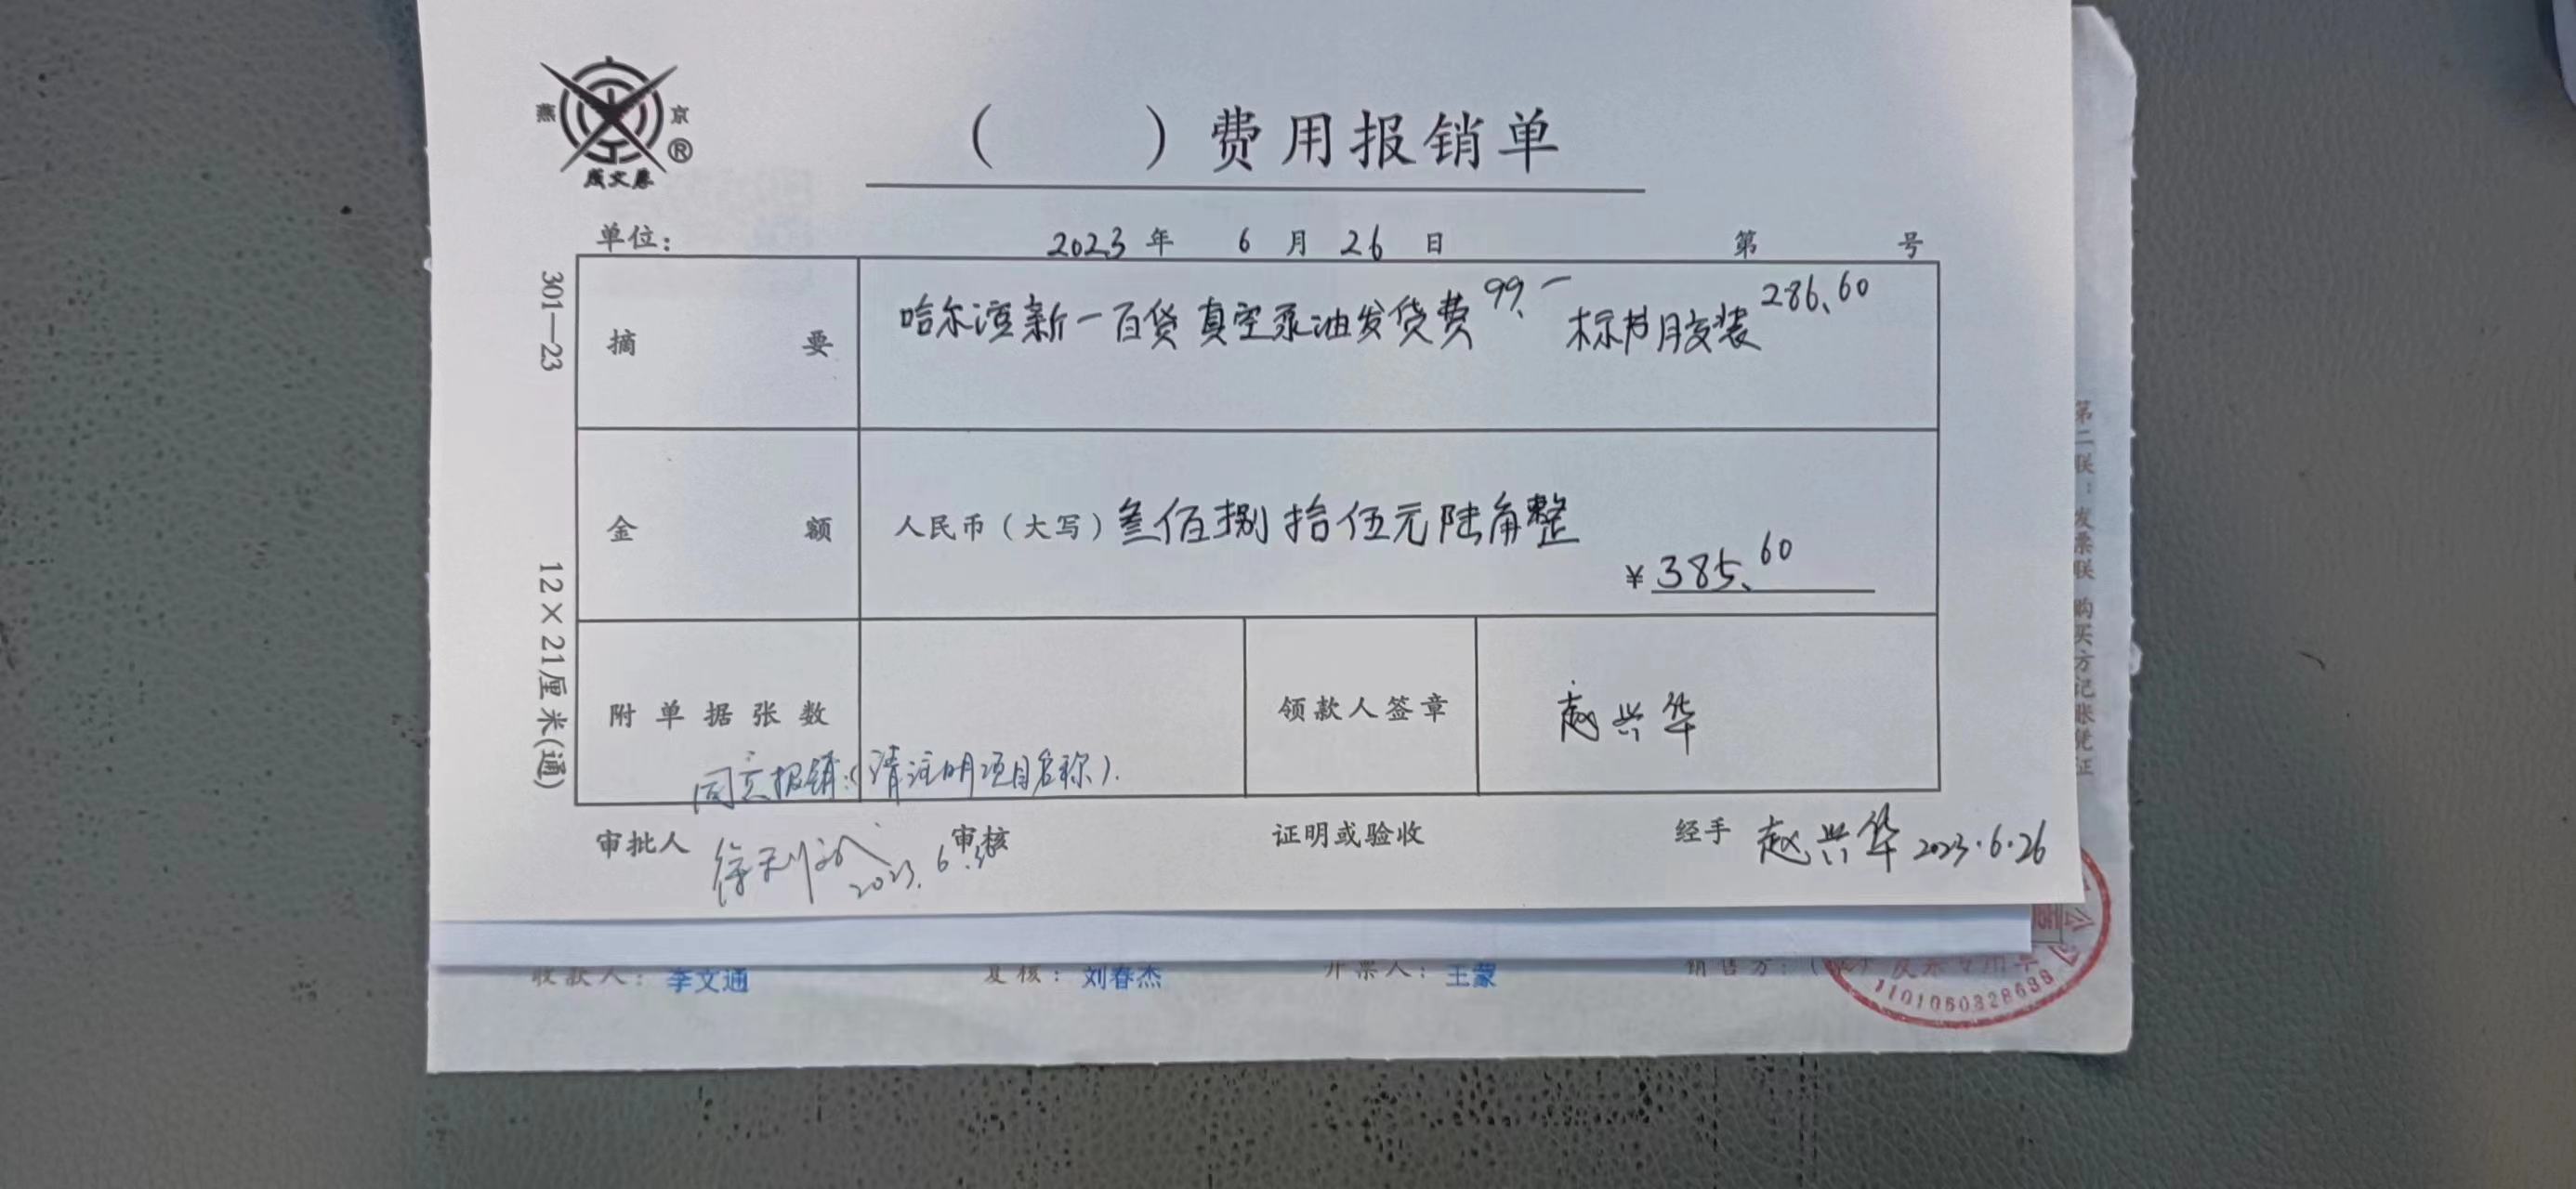 燕 京 ®
成文厚
( ) 费用报销单
单位: 2023 年 6 月 26 日 第 号
301—23
12×21厘米(通)
摘 要 哈尔滨新一百货 真空泵油发货费 99.一 标书胶装 286.60
金 额 人民币(大写) 叁佰捌拾伍元陆角整
¥ 385.60
附单据张数 领款人签章 赵兴华
同意报销:(请注明项目名称).
审批人 2023.6 审核 证明或验收 经手 赵兴华 2023.6.26
第二联:发票联 购买方记账凭证
收款人: 李文通 复核: 刘春杰 开票人: 王蒙 销售方:(章) 发票专用章